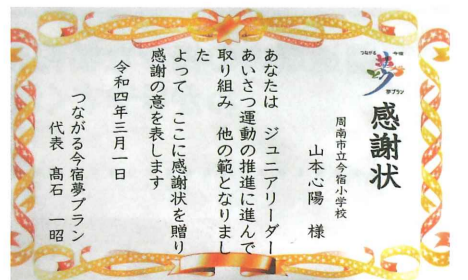 つながる 今宿
夢プラン
感謝状
周南市立今宿小学校
山本心陽 様
あなたは ジュニアリーダー
あいさつ運動の推進に進んで
取り組み 他の範となりまし
た
よって ここに感謝状を贈り
感謝の意を表します
令和四年三月一日
つながる今宿夢プラン
代表 髙石 一昭